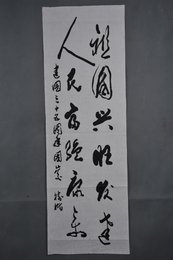 祖國兴旺发達
人民富強康乐
建國三十五周年國慶